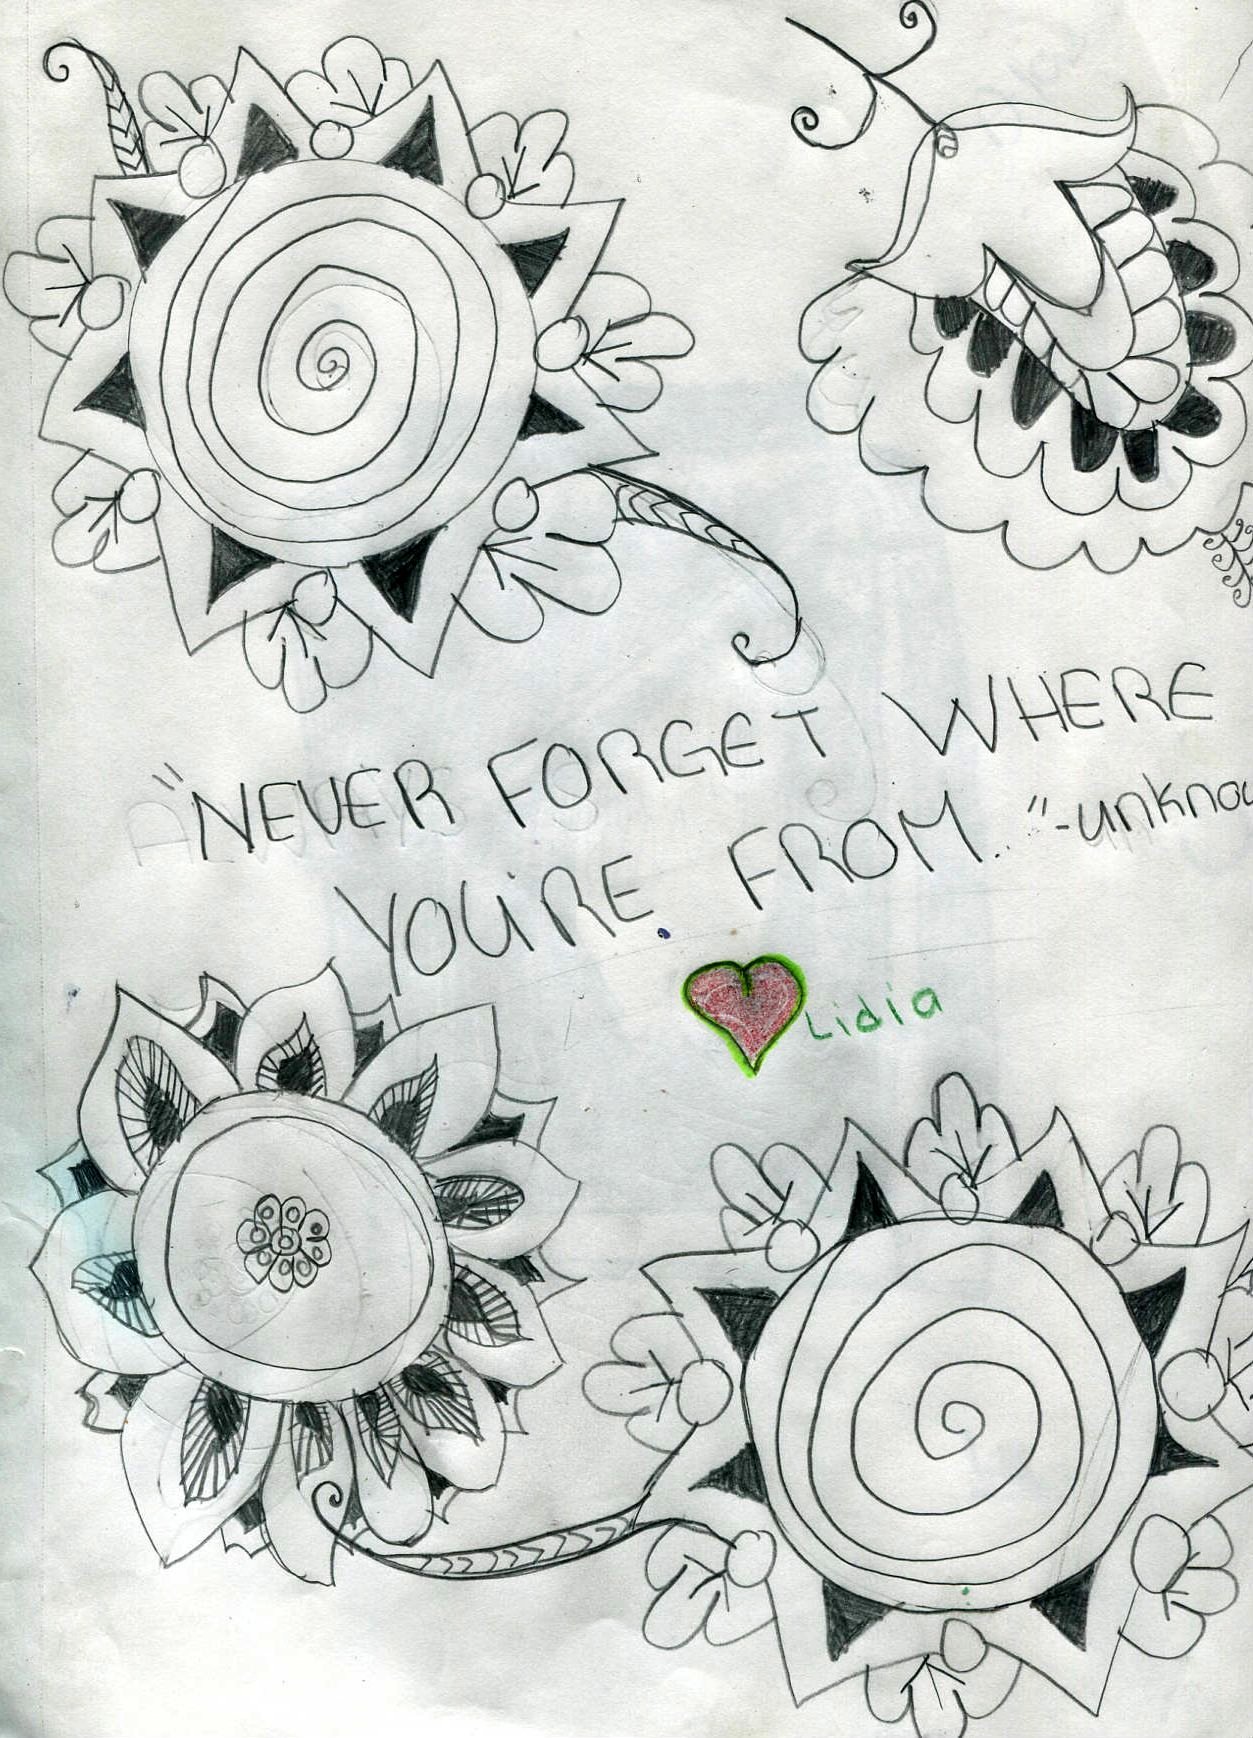 "NEVER FORGET WHERE
YOU'RE FROM.." -unknow
Lidia